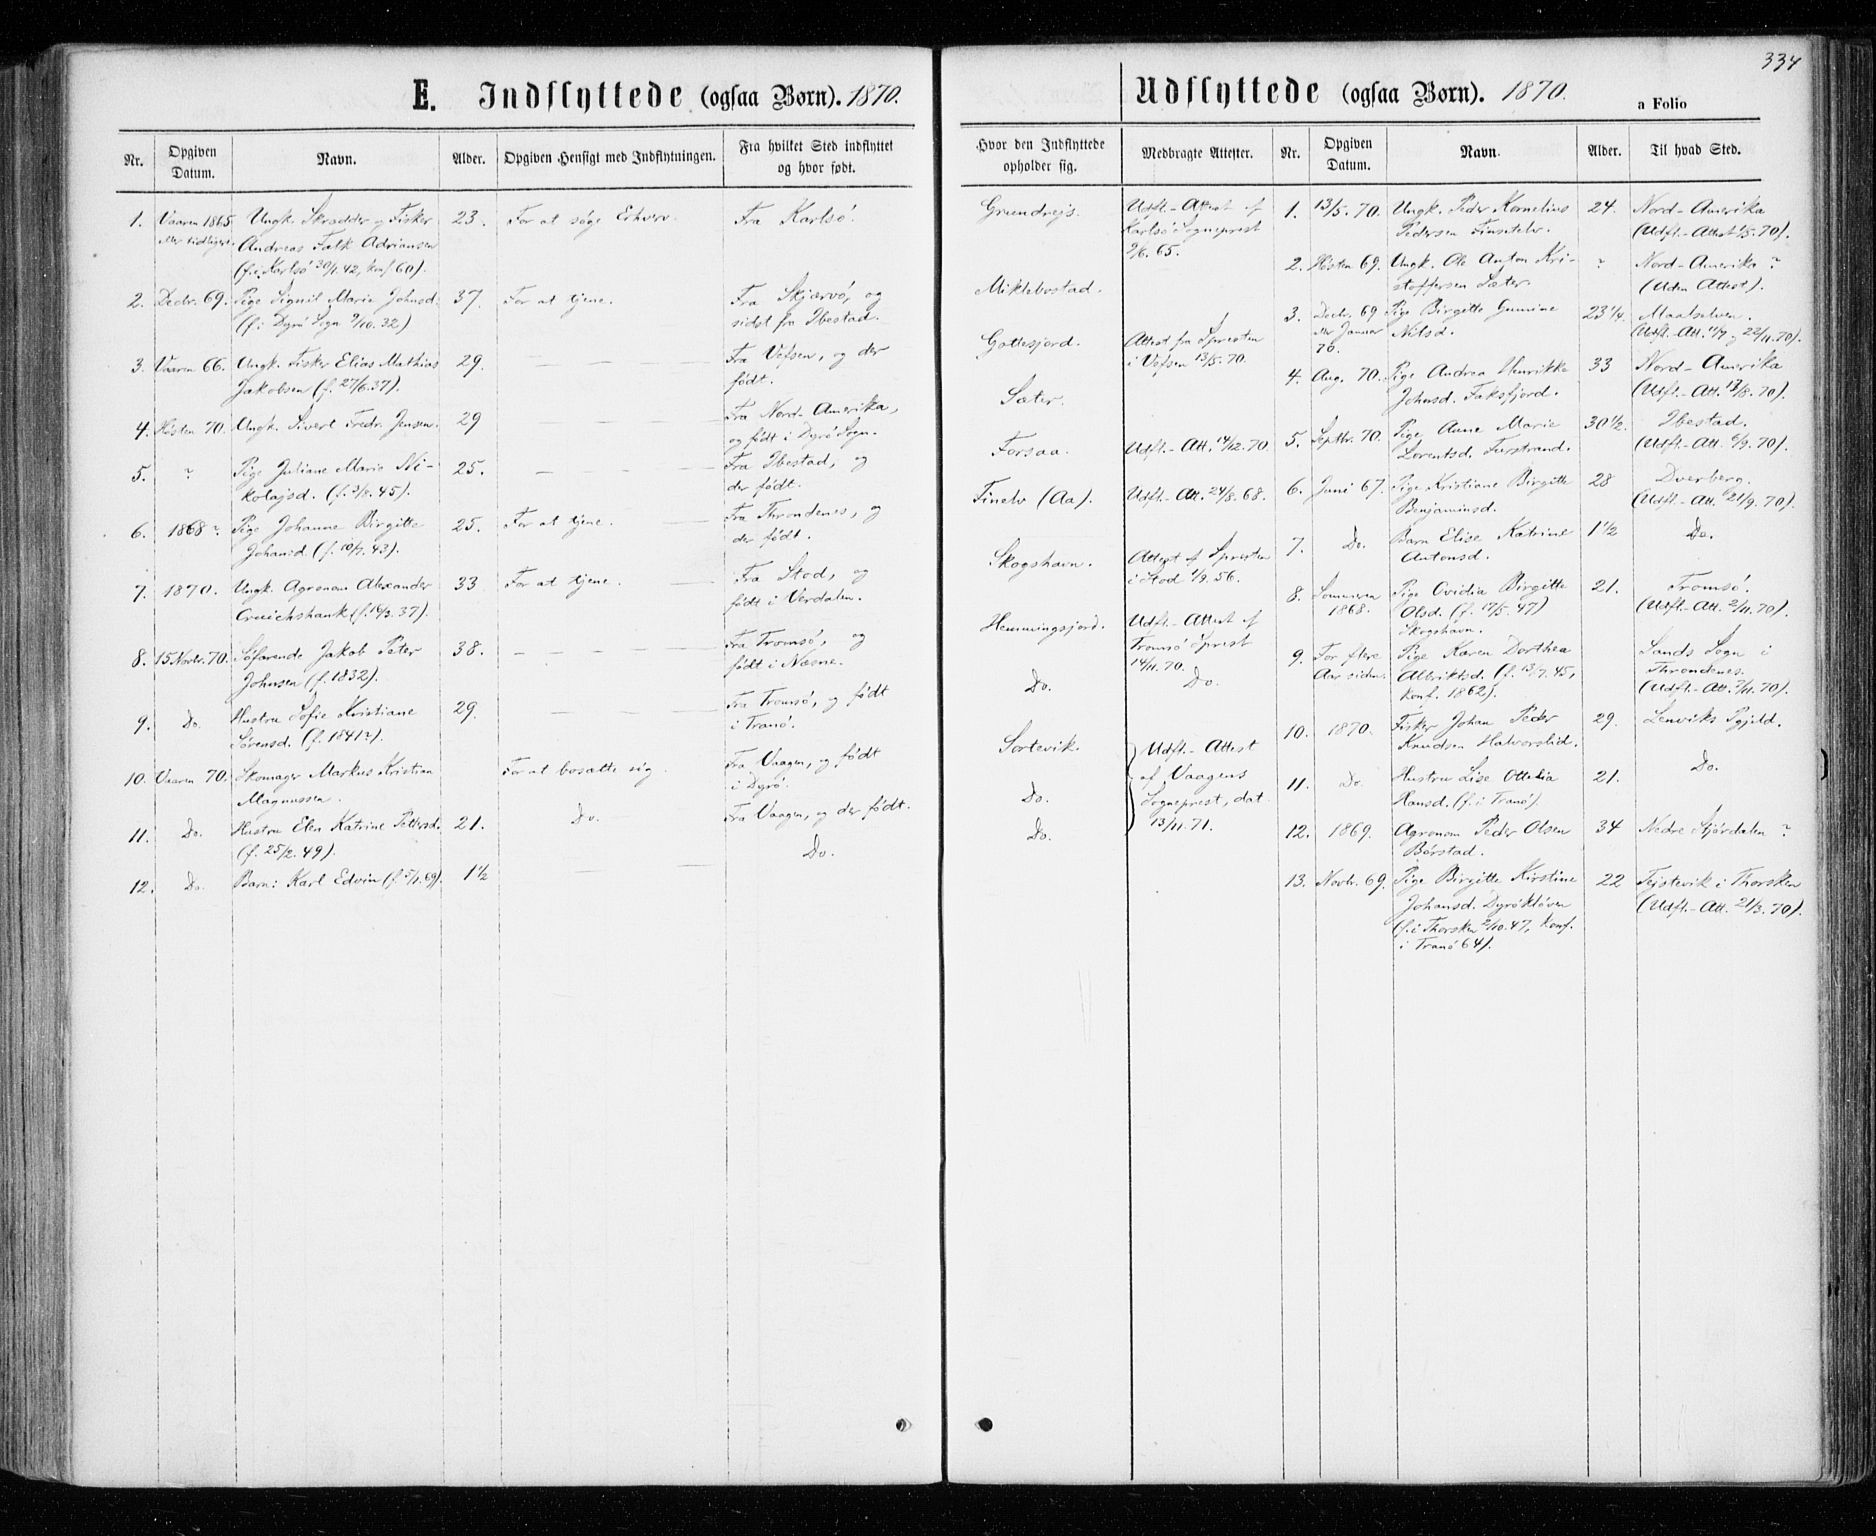 334
E. Indflyttede (ogsaa Børn). 1870.
Nr. Opgiven Datum. Navn. Alder. Opgiven Hensigt med Indflytningen. Fra hvilket Sted indflyttet og hvor født. Hvor den Indflyttede opholder sig. Medbragte Attester.
1. Vaaren 1865 Ungk. Skrædder og Fisker 23. For at söge Erhverv. Fra Karlsö. Grundrejs. Udfl.-Attest af
eller tidligere. Andreas Falk Adriansen Karlsö Sogneprest
(f. i Karlsö 30/1. 42, konf. 60). 9/6. 65.
2. Decbr. 69. Pige Signil Marie Johnsd. 37. For at tjene. Fra Skjærvö, og Miklebostad.
(f. i Dyrö Sogn 9/10. 32) sidst fra Ibestad.
3. Vaaren 66. Ungk. Fisker Elias Mathias 29. — — — Fra Vefsen, og der Gottesjord. Attest fra Spresten
Jakobsen (f. 27/6. 37). født. i Vefsen 13/5. 70.
4. Hösten 70. Ungk. Sivert Fredr. Jensen. 29 Fra Nord-Amerika, Sæter.
og født i Dyrö Sogn.
5. ? Pige Juliane Marie Ni- 25. — — — — Fra Ibestad, og Forsaa. Udfl.-Att. 14/12. 70.
kolajsd. (f. 3/8. 45). der født.
6. 1868? Pige Johanne Birgitte 25. For at tjene. — Fra Throndenes, og Finelv (Aa). Udfl.-Att. 24/8. 68.
Johansd. (f. 10/7. 43). der født.
7. 1870. Ungk. Agronom Alexander 33 For at tjene. — Fra Stod, og Skogshavn. Attest af Spresten
Cruichshank (f. 16/3. 37). født i Verdalen. i Stod 1/9. 56.
8. 15 Novbr. 70. Söfarende Jakob Peter 38. — — — — Fra Tromsö, og Hemmingsjord. Udfl.-Attest af
Johnsen (f. 1832). født i Næsne. Tromsö Sprest
14/11. 70.
9. Do. Hustru Sofie Kristiane 29. — — — Fra Tromsö, og født Do. Do.
Sörensd. (f. 1841?). i Tranö.
10. Vaaren 70. Skomager Markus Kristian For at bosætte sig. Fra Vaagen, og født Sortevik. Udfl.-Attest
Magnussen. i Dyrö. af Vaagens
11. Do. Hustru Elen Katrine Pettersd. 21. Do. — Fra Vaagen, og der født. Do. Sogneprest, dat.
(f. 25/2. 49). 13/11. 71.
12. Do. Barn: Karl Edvin (f. 5/1. 69). 1 1/2 — — Do. Do.
Udflyttede (ogsaa Børn). 1870.
a Folio
Nr. Opgiven Datum. Navn. Alder. Til hvad Sted.
1. 13/5. 70. Ungk. Peder Kornelius 24. Nord-Amerika
Pedersen Finsetelv. (Udfl.-Attest 1/5. 70).
2. Hösten 69. Ungk. Ole Anton Kri- ? Nord-Amerika?
stoffersen Sæter. (Uden Attest).
3. Decbr. 69 Pige Birgitte Gunine 23 1/4. Maalselven.
eller Januar Nilsd. (Udfl.-Att. 11/7 og 22/11. 70).
70.
4. Aug. 70. Pige Andrea Henrikke 33 Nord-Amerika
Johnsd. Faksfjord. (Udfl.-Att. 13/8. 70).
5. Septbr. 70. Pige Anne Marie 30 1/2. Ibestad.
Lorentsd. Furstrand. (Udfl.-Att. 6/9. 70).
6. Juni 67. Pige Kristiane Birgitte 28 Dverberg.
Benjaminsd. (Udfl.-Att. 21/9. 70).
7. Do. Barn Elise Katrine 1 1/2 Do.
Antonsd.
8. Sommeren Pige Ovidia Birgitte 21. Tromsö.
1868. Olsd. (f. 17/5. 47) (Udfl.-Att. 2/11. 70).
Skogshavn.
9. For flere Pige Karen Dorthea Sands Sogn i
Aar siden. Albriktsd. (f. 13/7. 45, Throndenes.
konf. 1862). (Udfl.-Att. 7/11. 70).
10. 1870. Fisker Johan Peder 29. Lenviks Pgjeld.
Knudsen Halvorslid.
11. Do. Hustru Lise Ottelia 21. Do.
Hansd. (f. i Tranö).
12. 1869. Agronom Peder Olsen 34 Nedre Stjördalen?
Börstad.
13. Novbr. 69. Pige Birgitte Kirstine 22 Tejstevik i Thorsken
Johansd. Dyröklöven (Udfl.-Att. 21/3. 70).
(f. i Thorsken 2/10. 47, konf.
i Tranö 64).